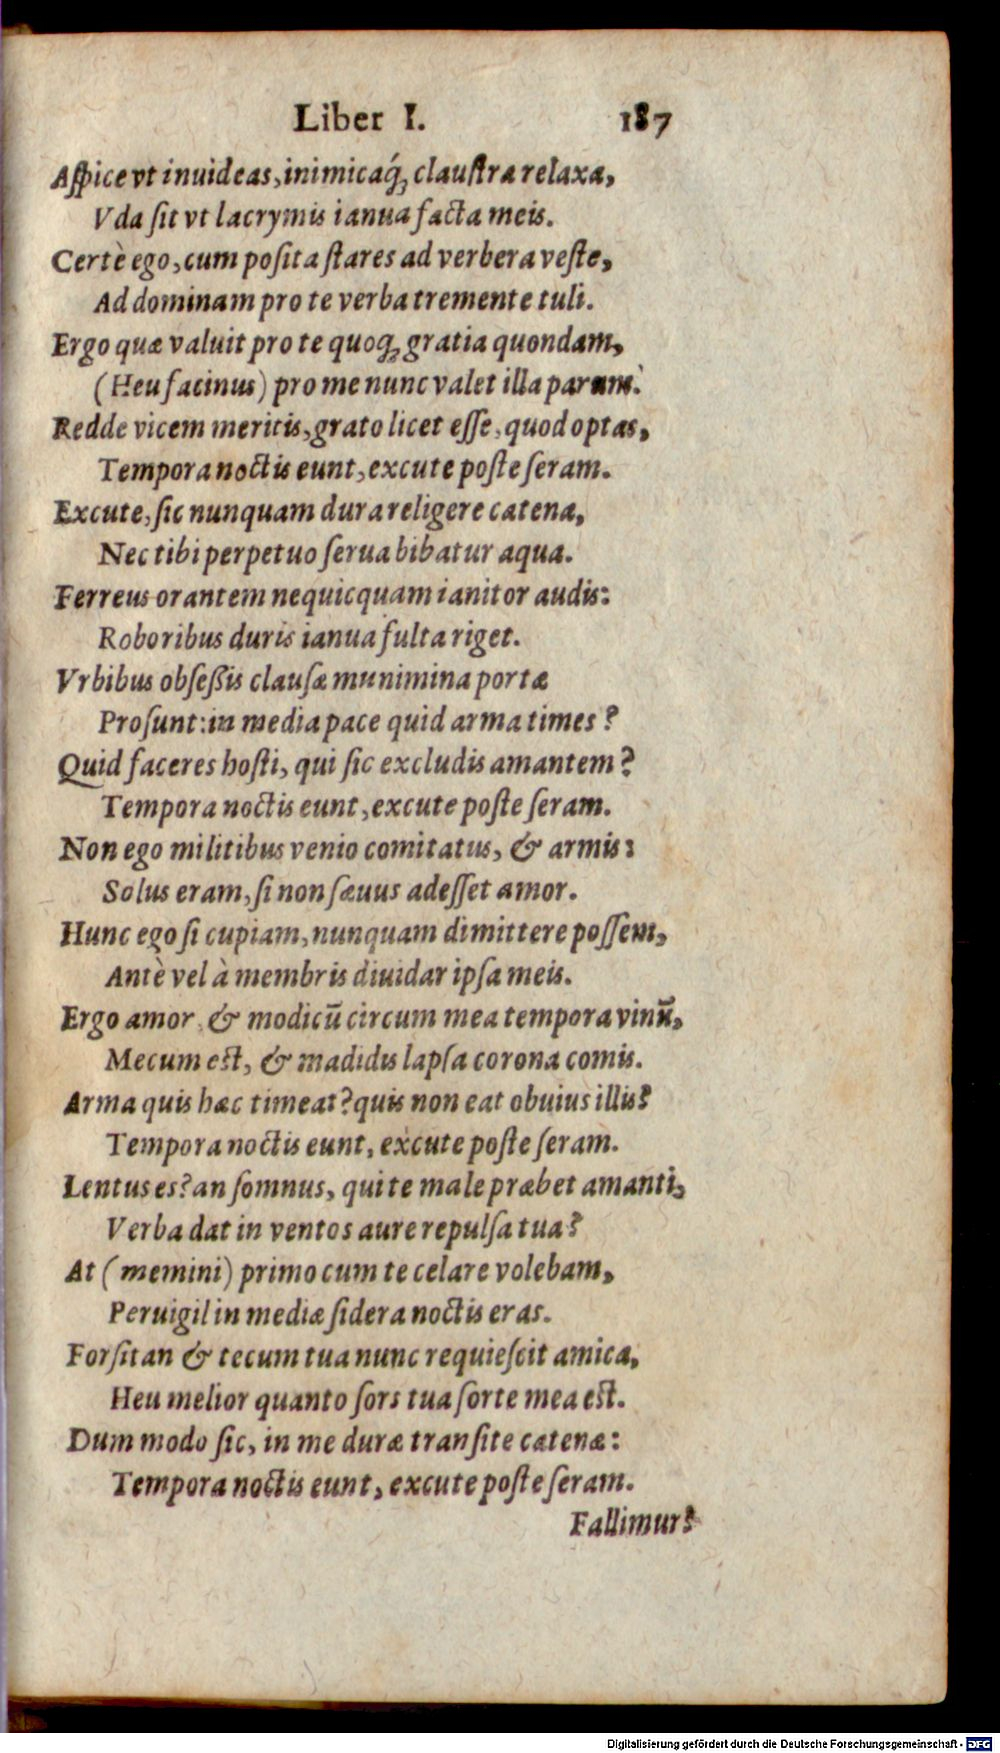 Liber I. 187
Aſpice vt inuideas, inimicaq́; clauſtra relaxa,
Vda ſit vt lacrymis ianua facta meis.
Certè ego, cum poſita ſtares ad verbera veſte,
Ad dominam pro te verba tremente tuli.
Ergo quæ valuit pro te quoq; gratia quondam,
(Heu facinus) pro me nunc valet illa parum?
Redde vicem meritis, grato licet eſſe, quod optas,
Tempora noctis eunt, excute poſte ſeram.
Excute, ſic nunquam dura religere catena,
Nec tibi perpetuo ſerua bibatur aqua.
Ferreus orantem nequicquam ianitor audis:
Roboribus duris ianua fulta riget.
Vrbibus obſeßis clauſæ munimina portæ
Proſunt: in media pace quid arma times?
Quid faceres hoſti, qui ſic excludis amantem?
Tempora noctis eunt, excute poſte ſeram.
Non ego militibus venio comitatus, & armis:
Solus eram, ſi non ſæuus adeſſet amor.
Hunc ego ſi cupiam, nunquam dimittere poſſem,
Antè vel à membris diuidar ipſa meis.
Ergo amor, & modicū circum mea tempora vinū,
Mecum est, & madidis lapſa corona comis.
Arma quis hæc timeat? quis non eat obuius illis?
Tempora noctis eunt, excute poſte ſeram.
Lentus es? an ſomnus, qui te male præbet amanti,
Verba dat in ventos aure repulſa tua?
At (memini) primo cum te celare volebam,
Peruigil in mediæ ſidera noctis eras.
Forſitan & tecum tua nunc requieſcit amica,
Heu melior quanto ſors tua ſorte mea est.
Dum modo ſic, in me duræ tranſite catenæ:
Tempora noctis eunt, excute poſte ſeram.
Fallimur?
Digitalisierung gefördert durch die Deutsche Forschungsgemeinschaft - DFG